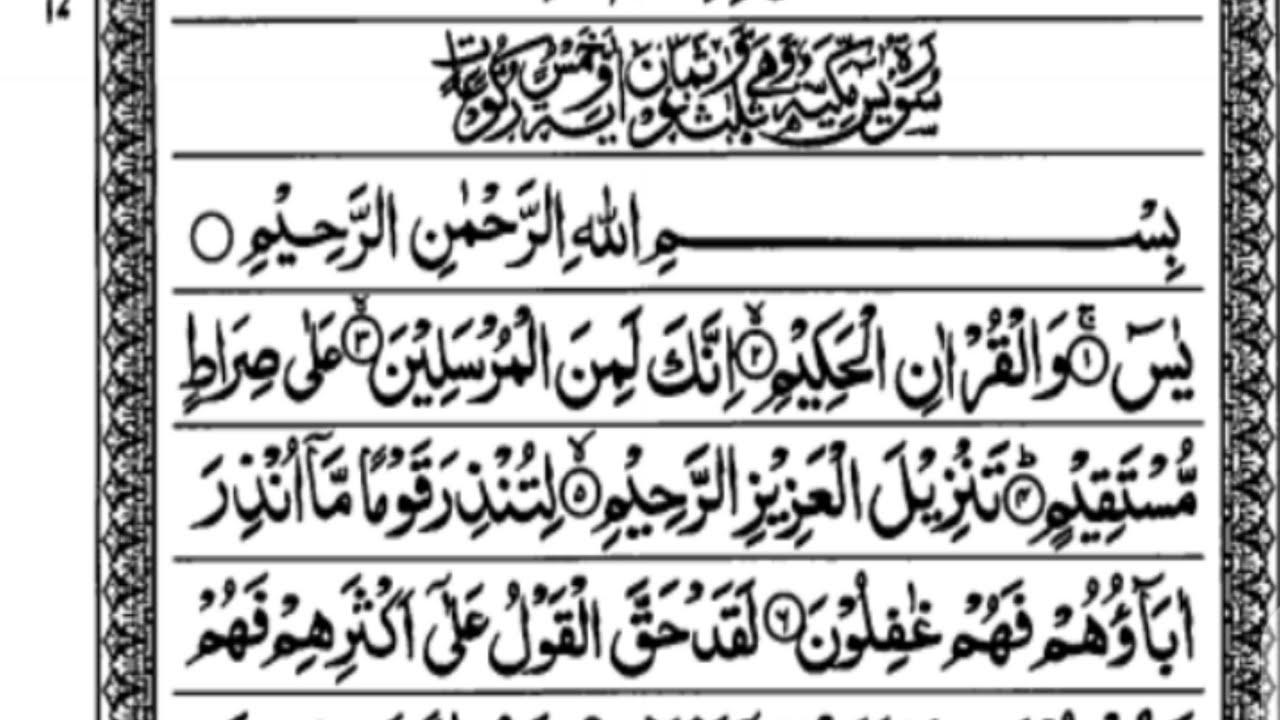 سورة يس مكية وهي ثلث وثمانون اية وخمس ركوعات
بِسْمِ اللهِ الرَّحْمٰنِ الرَّحِيْمِ
يٰسٓ ۚ﴿۱﴾ وَالْقُرْاٰنِ الْحَكِيْمِ ۙ﴿۲﴾ اِنَّكَ لَمِنَ الْمُرْسَلِيْنَ ۙ﴿۳﴾ عَلٰى صِرَاطٍ
مُّسْتَقِيْمٍ ؕ﴿۴﴾ تَنْزِيْلَ الْعَزِيْزِ الرَّحِيْمِ ۙ﴿۵﴾ لِتُنْذِرَ قَوْمًا مَّاۤ اُنْذِرَ
اٰبَآؤُهُمْ فَهُمْ غٰفِلُوْنَ ﴿۶﴾ لَقَدْ حَقَّ الْقَوْلُ عَلٰۤى اَكْثَرِهِمْ فَهُمْ